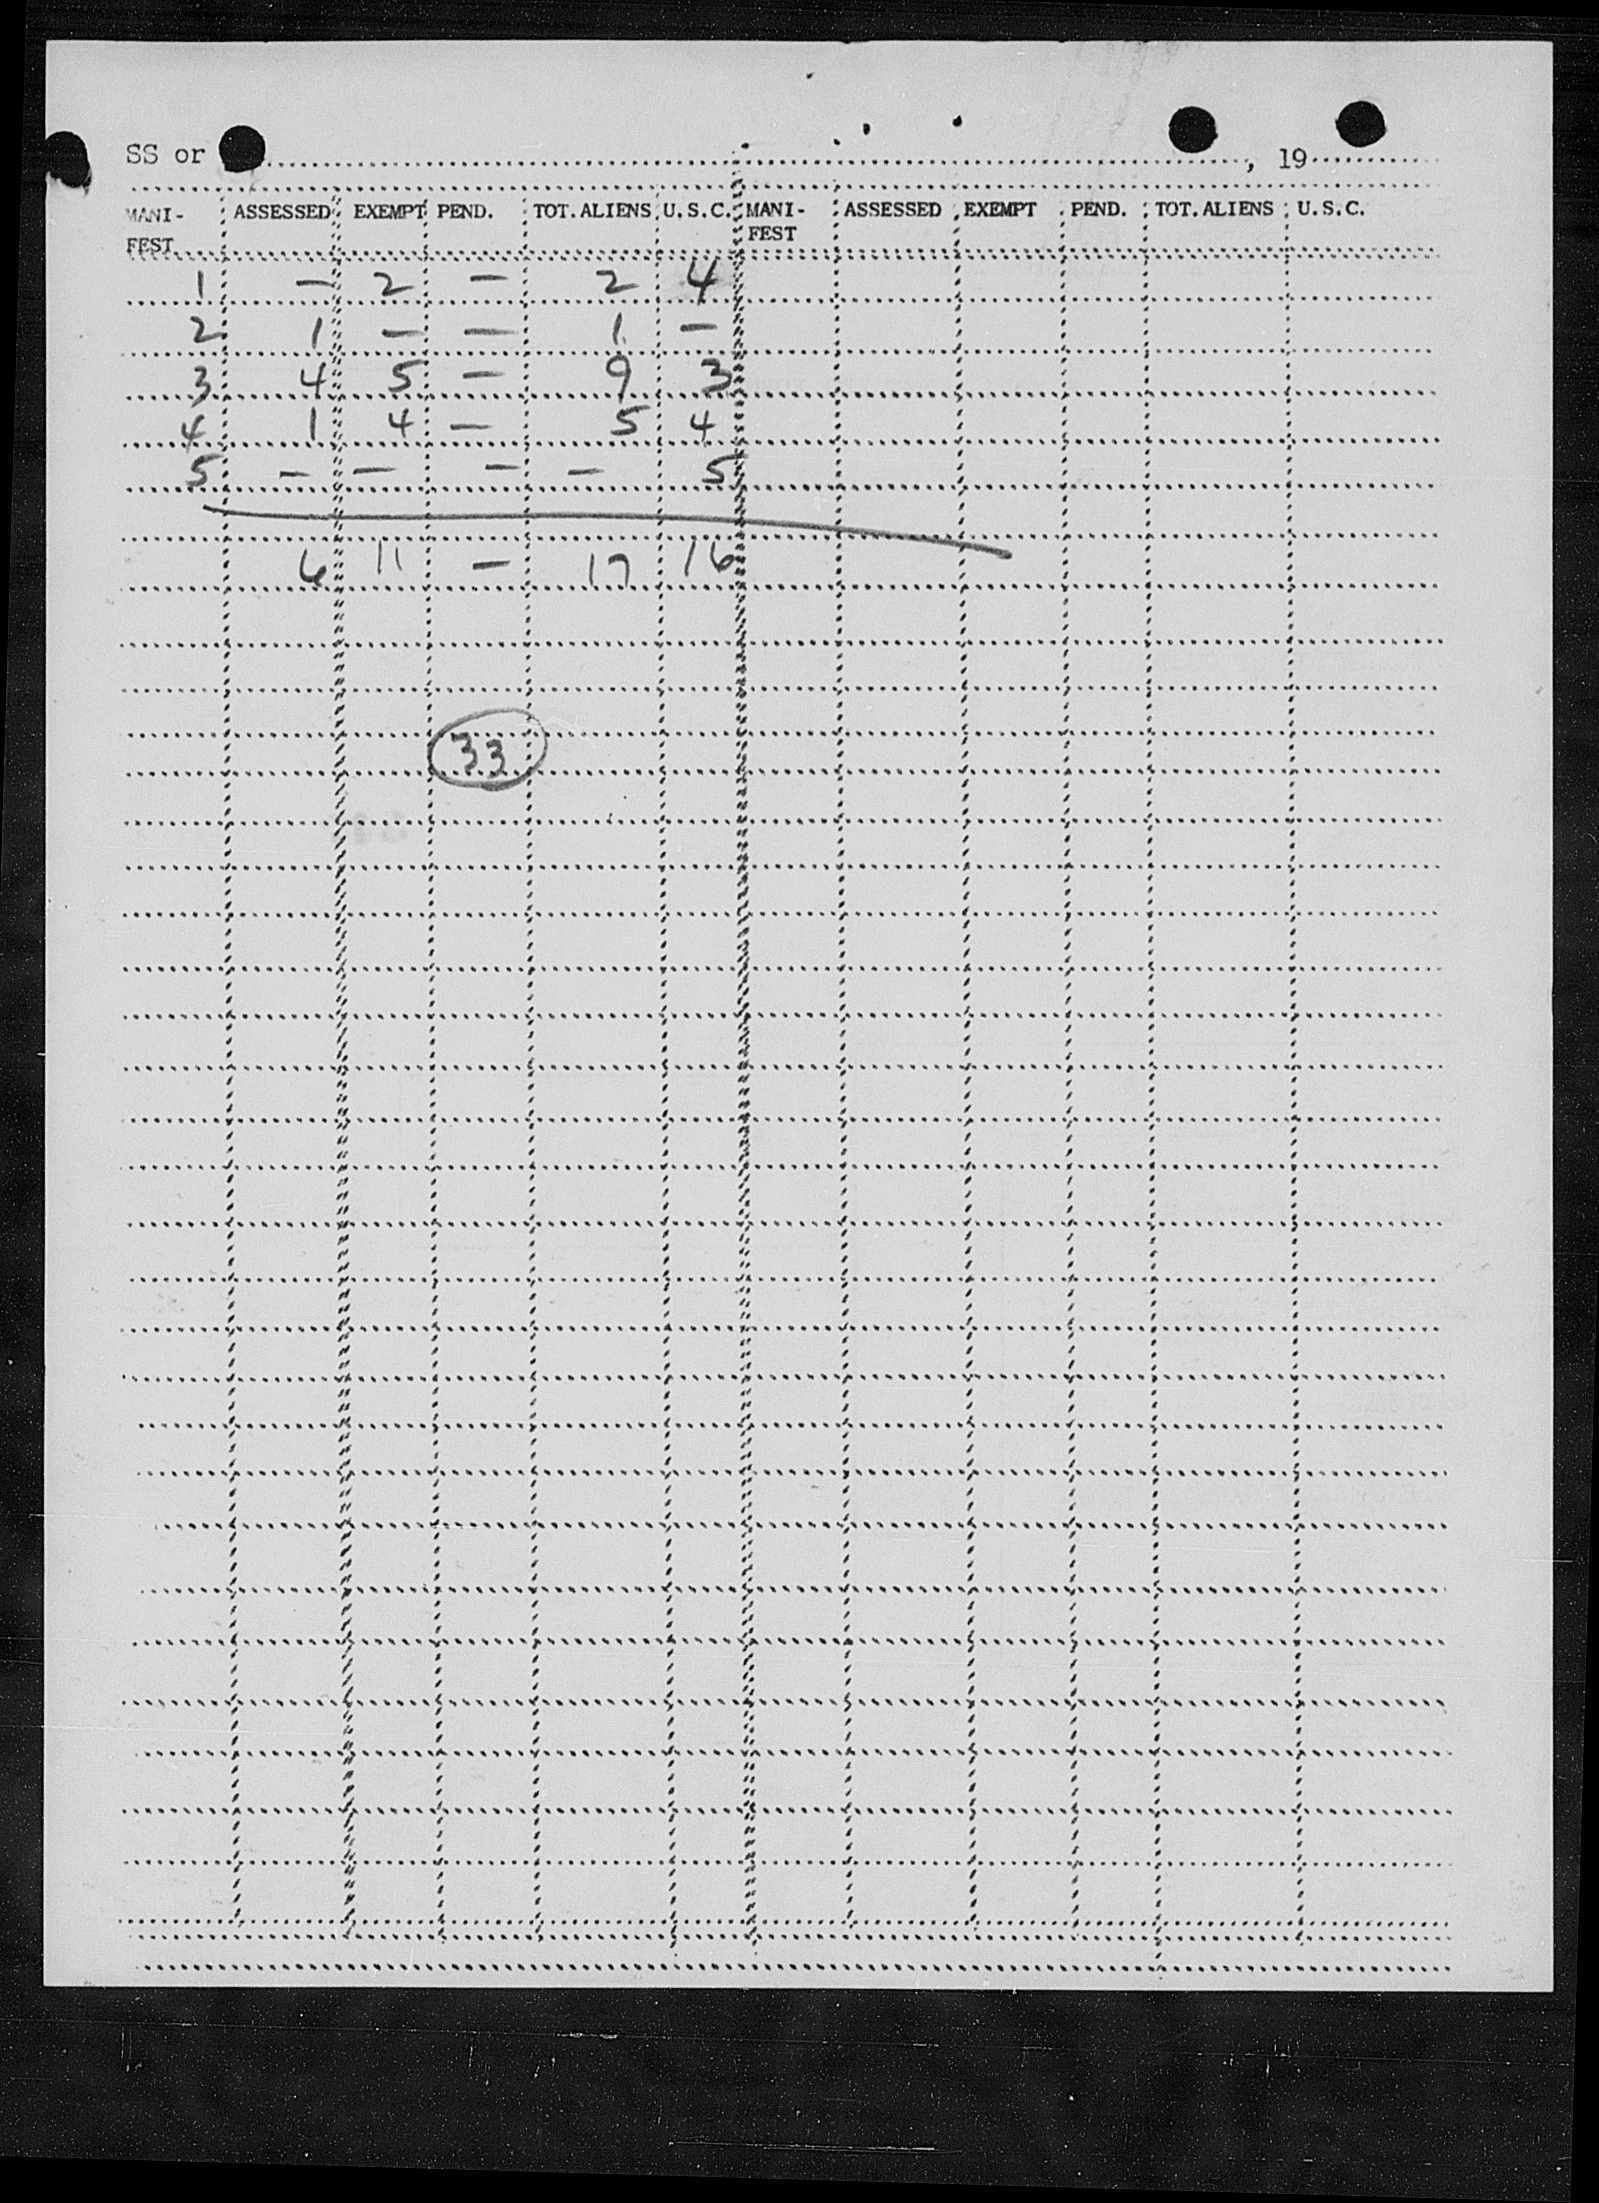 SS or , 19
MANI-FEST ASSESSED EXEMPT PEND. TOT. ALIENS U.S.C. MANI-FEST ASSESSED EXEMPT PEND. TOT. ALIENS U.S.C.
1 – 2 – 2 4
2 1 – – 1 –
3 4 5 – 9 3
4 1 4 – 5 4
5 – – – – 5
6 11 – 17 16
33